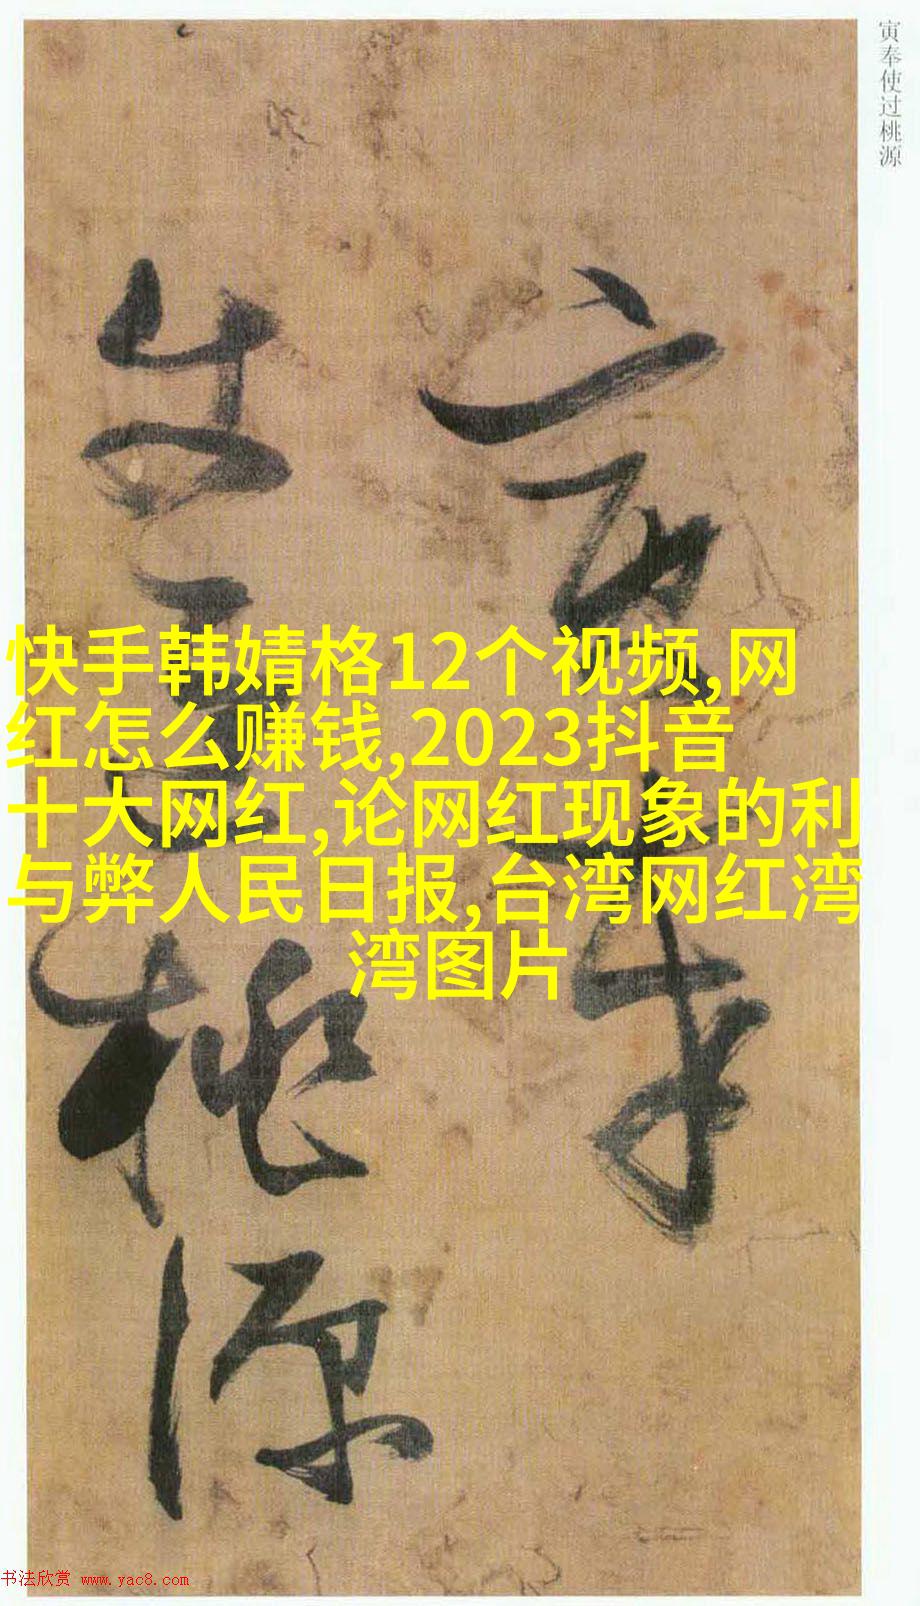 寅奉使过桃源
寅奉
使过桃源
快手韩婧格12个视频,网
红怎么赚钱,2023抖音
十大网红,论网红现象的利
与弊人民日报,台湾网红湾
湾图片
书法欣赏 www.yac8.com